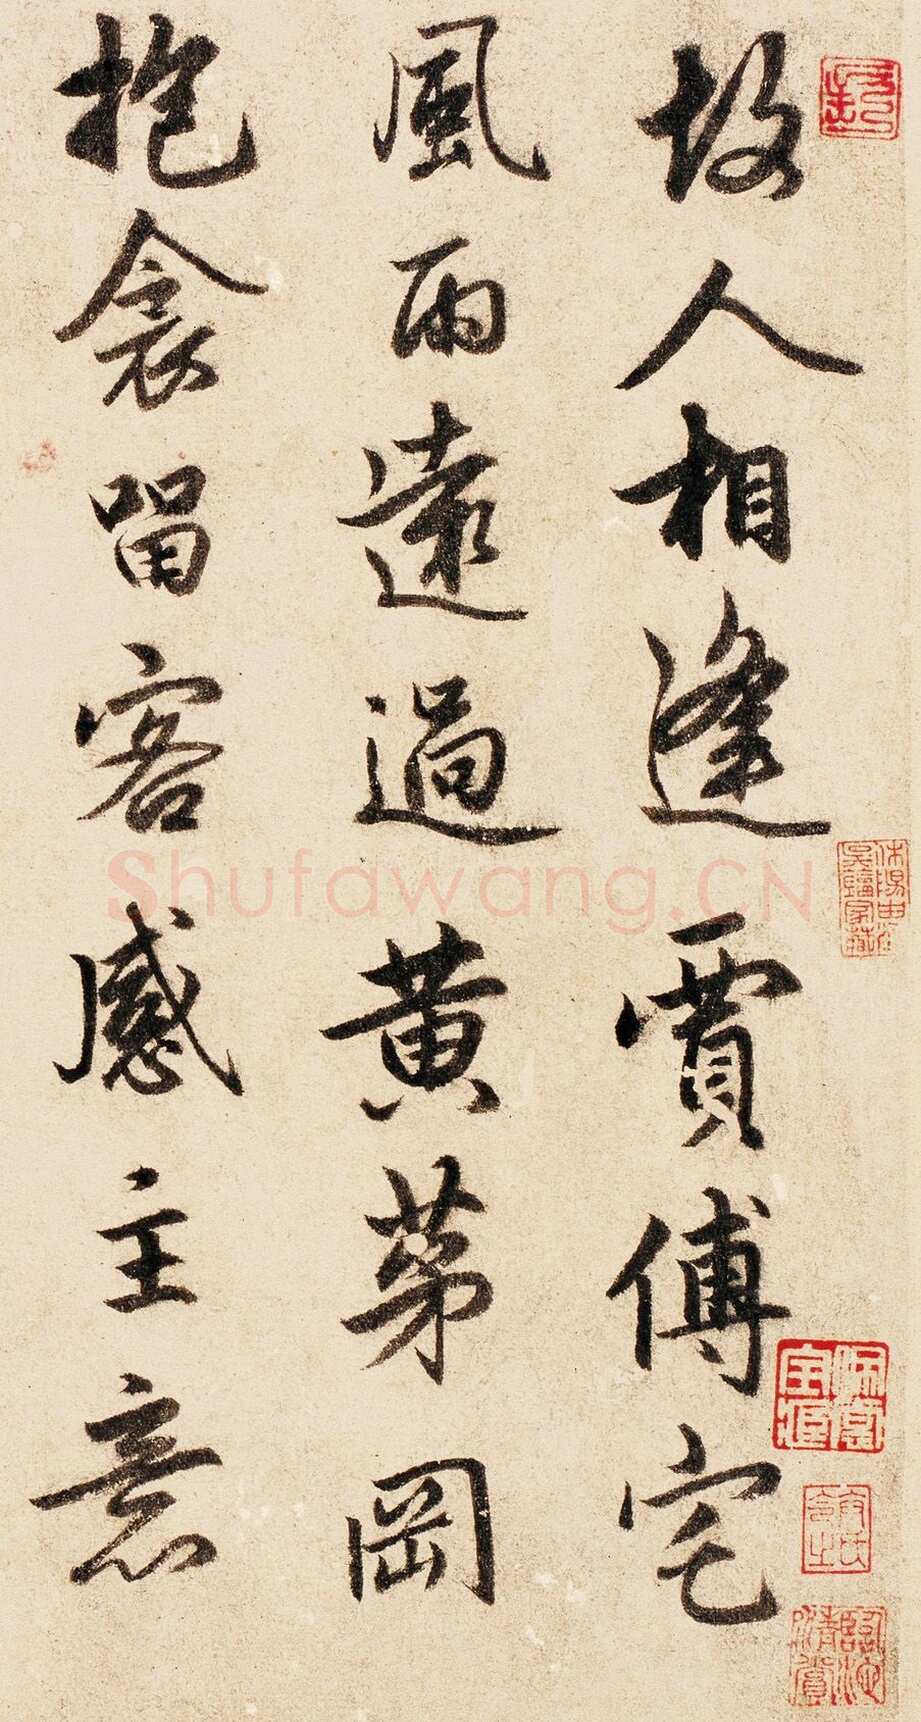 故人相逢賈傅宅
風雨遠過黃茅岡
抱衾留客感主意
Shufawang.CN